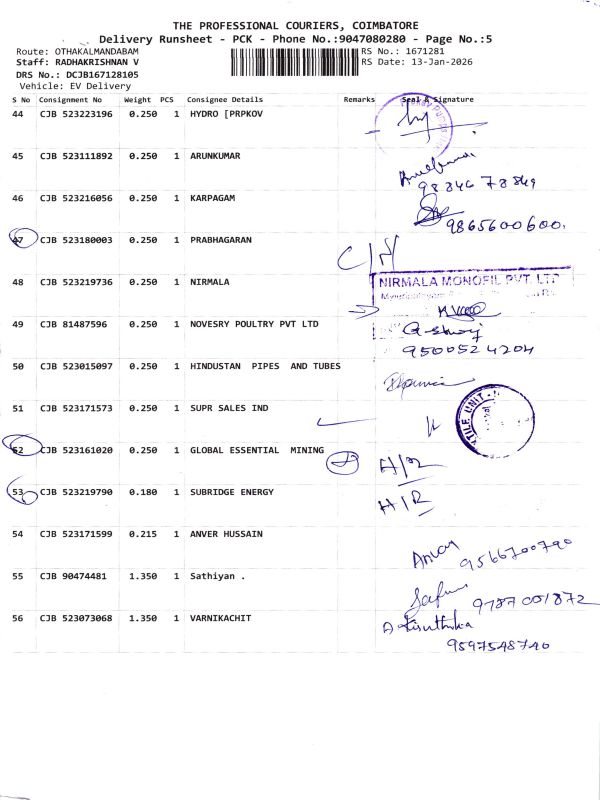 THE PROFESSIONAL COURIERS, COIMBATORE
Delivery Runsheet - PCK - Phone No.:9047080280 - Page No.:5
Route: OTHAKALMANDABAM RS No.: 1671281
Staff: RADHAKRISHNAN V RS Date: 13-Jan-2026
DRS No.: DCJB167128105
Vehicle: EV Delivery
S No Consignment No Weight PCS Consignee Details Remarks Seal & Signature
44 CJB 523223196 0.250 1 HYDRO [PRPKOV
45 CJB 523111892 0.250 1 ARUNKUMAR
46 CJB 523216056 0.250 1 KARPAGAM
9865600600.
47 CJB 523180003 0.250 1 PRABHAGARAN
48 CJB 523219736 0.250 1 NIRMALA NIRMALA MONOFIL PVT. LTD
49 CJB 81487596 0.250 1 NOVESRY POULTRY PVT LTD
9500524204
50 CJB 523015097 0.250 1 HINDUSTAN PIPES AND TUBES
51 CJB 523171573 0.250 1 SUPR SALES IND
52 CJB 523161020 0.250 1 GLOBAL ESSENTIAL MINING
53 CJB 523219790 0.180 1 SUBRIDGE ENERGY
54 CJB 523171599 0.215 1 ANVER HUSSAIN
9566700790
55 CJB 90474481 1.350 1 Sathiyan .
9787001872
56 CJB 523073068 1.350 1 VARNIKACHIT
9597548740